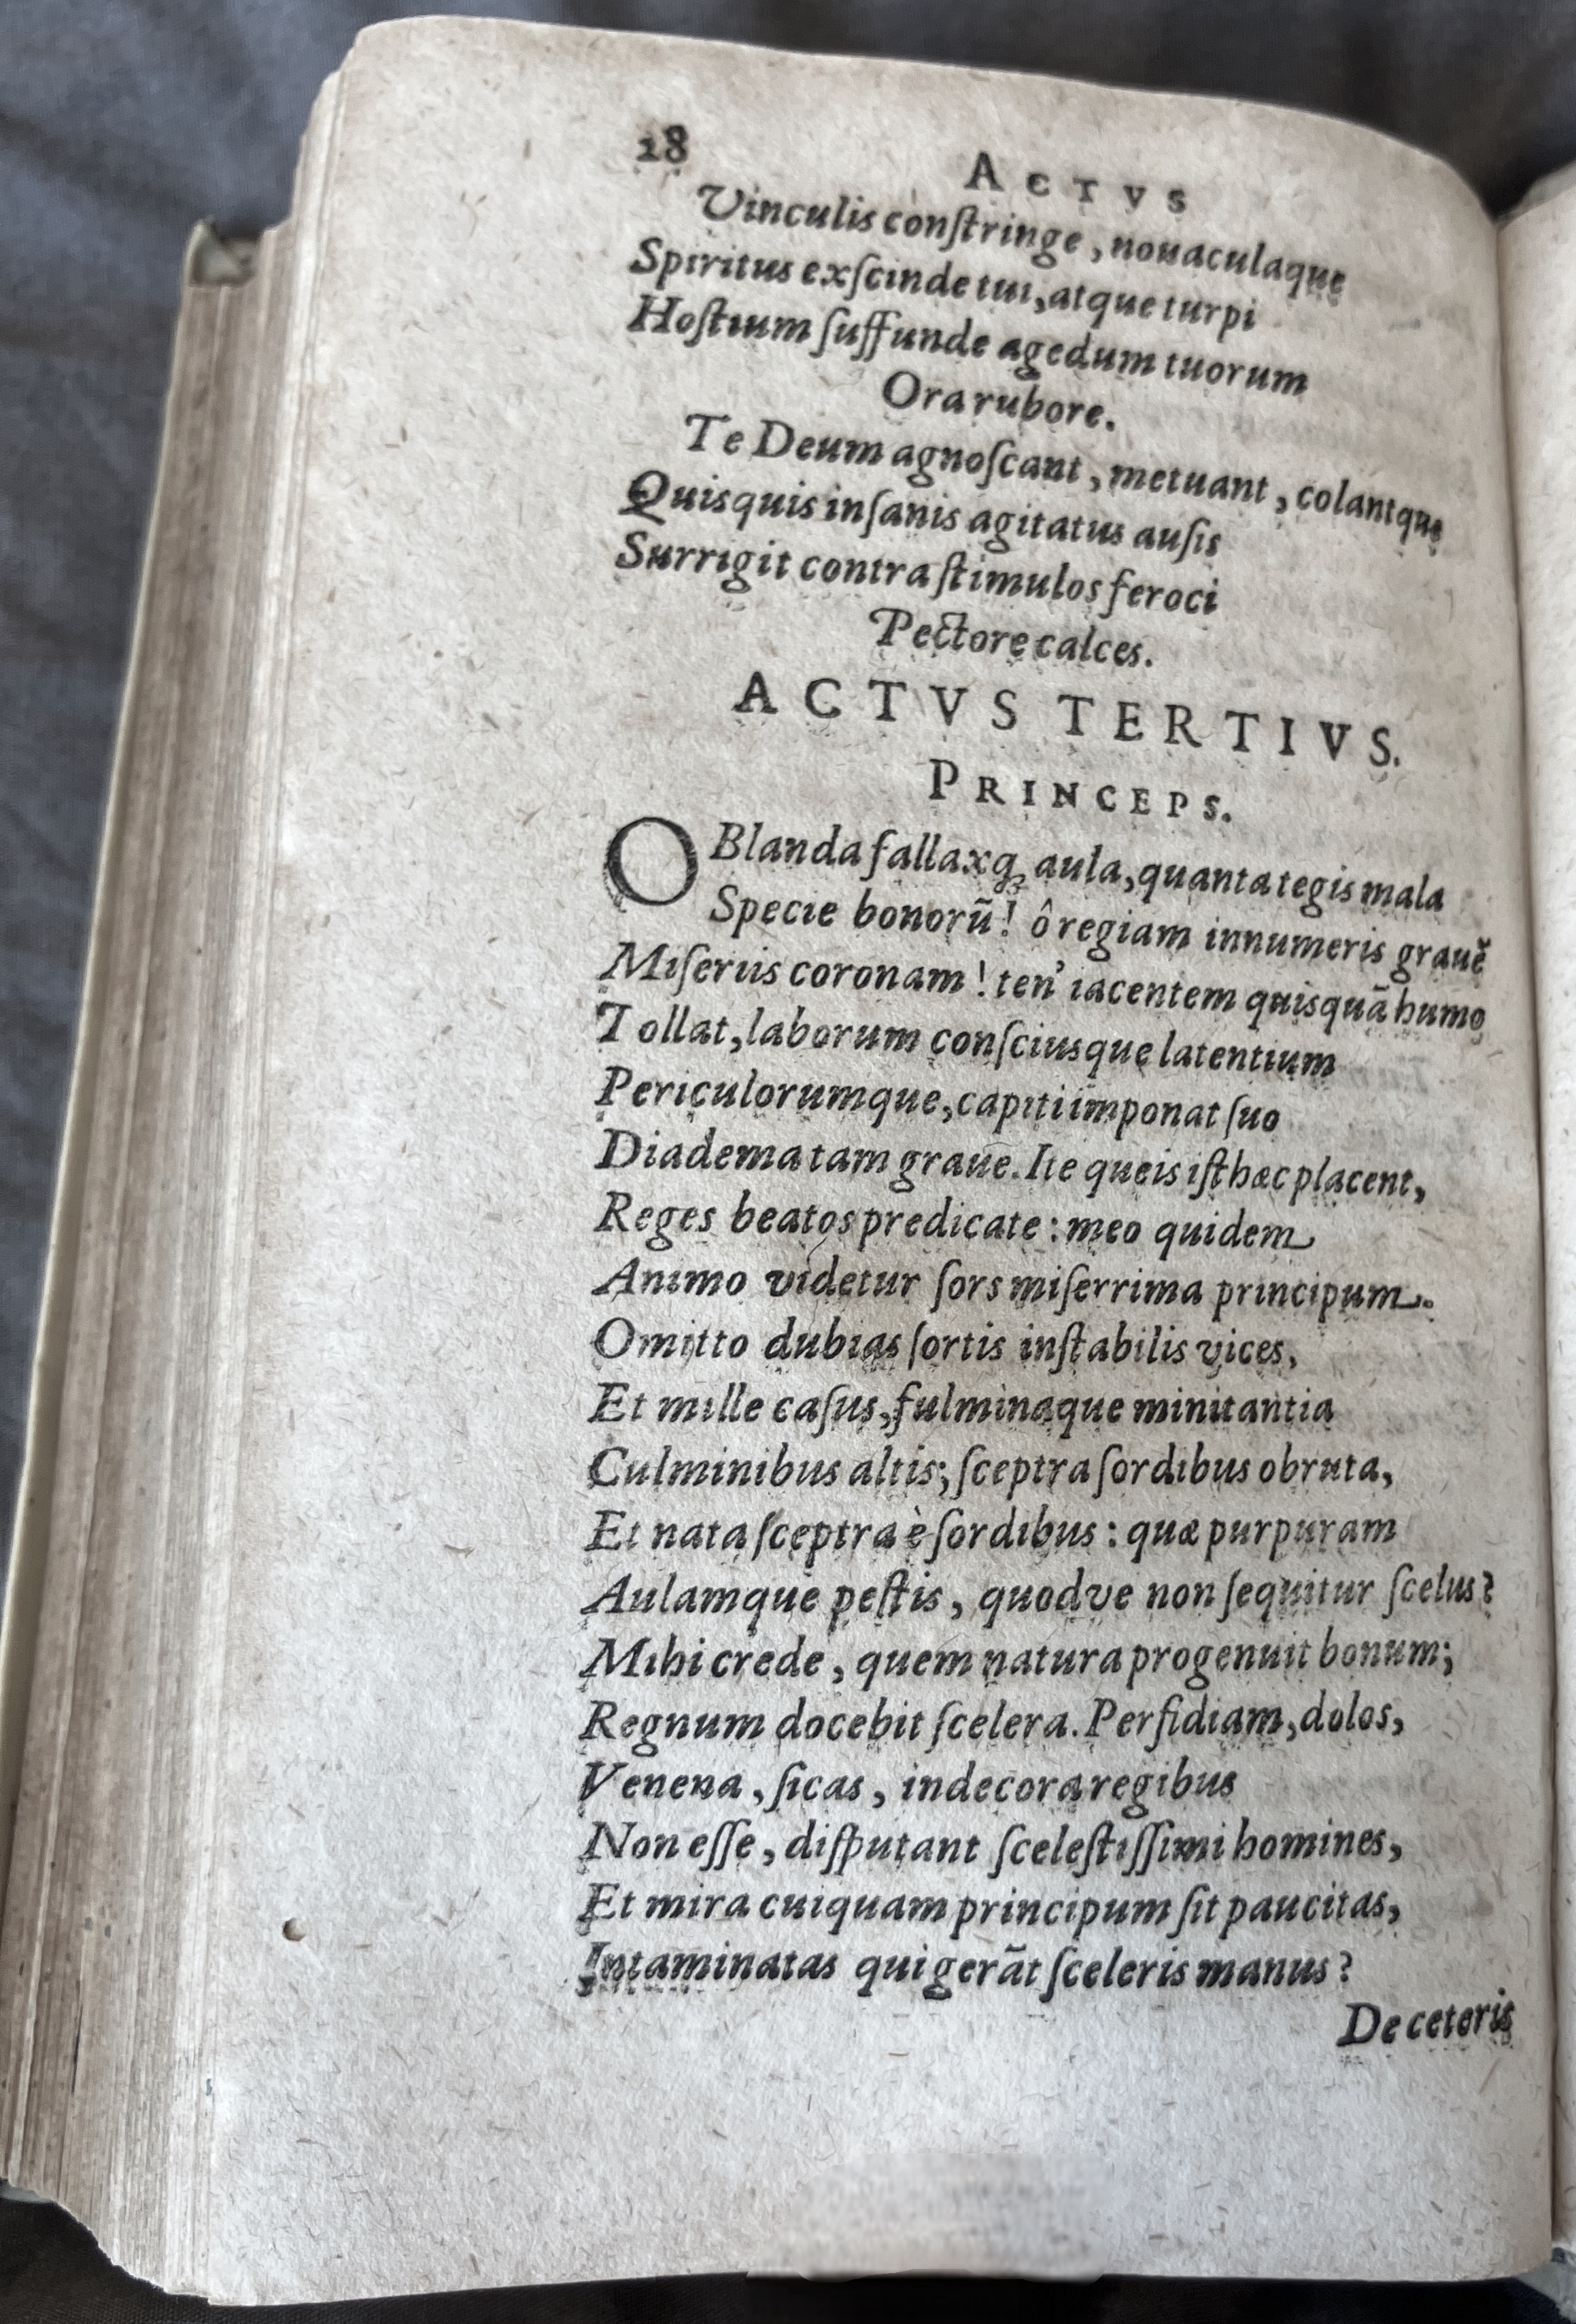 18
ACTVS
Vinculis conſtringe, nouaculaque
Spiritus exſcinde tui, atque turpi
Hoſtium ſuffunde agedum tuorum
Ora rubore.
Te Deum agnoſcant, metuant, colantque
Quisquis inſanis agitatus auſis
Surrigit contra ſtimulos feroci
Pectore calces.
ACTVS TERTIVS.
PRINCEPS.
O Blanda fallaxq; aula, quanta tegis mala
Specie bonorū! ô regiam innumeris grauē
Miſeriis coronam! ten' iacentem quisquā humo
Tollat, laborum conſciusque latentium
Periculorumque, capiti imponat ſuo
Diadema tam graue. Ite queis iſthæc placent,
Reges beatos predicate: meo quidem
Animo videtur ſors miſerrima principum.
Omitto dubias ſortis inſtabilis vices,
Et mille caſus, fulminaque minitantia
Culminibus altis; ſceptra ſordibus obruta,
Et nata ſceptra è ſordibus: quæ purpuram
Aulamque peſtis, quodve non ſequitur ſcelus?
Mihi crede, quem natura progenuit bonum;
Regnum docebit ſcelera. Perfidiam, dolos,
Venena, ſicas, indecora regibus
Non eſſe, diſputant ſceleſtiſſimi homines,
Et mira cuiquam principum ſit paucitas,
Intaminatas qui gerāt ſceleris manus?
De ceteris